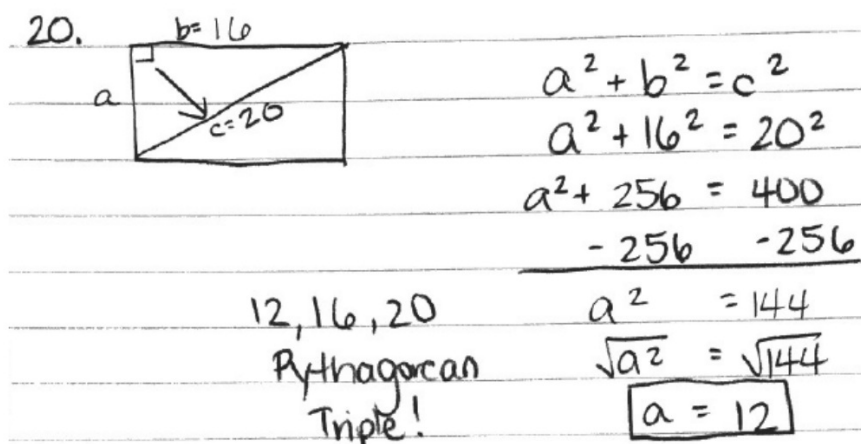 20.
b=16
a
c=20
a² + b² = c²
a² + 16² = 20²
a² + 256 = 400
- 256 -256
a² = 144
√a² = √144
a = 12
12, 16, 20
Pythagorean
Triple!